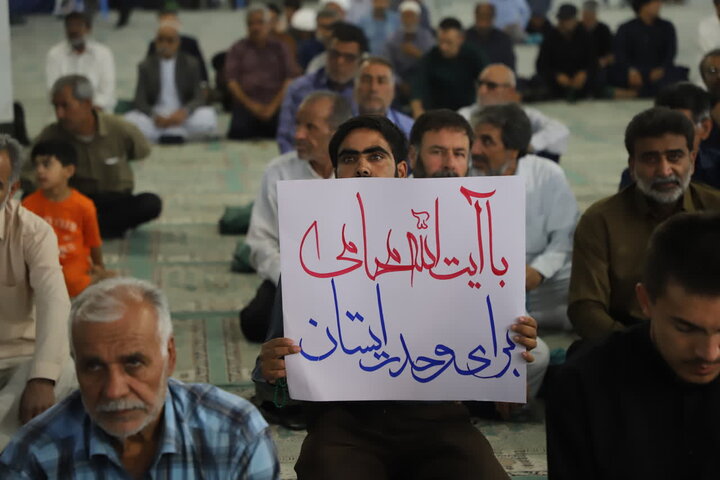 با آیت الله محامی
برای وحدت ایستان